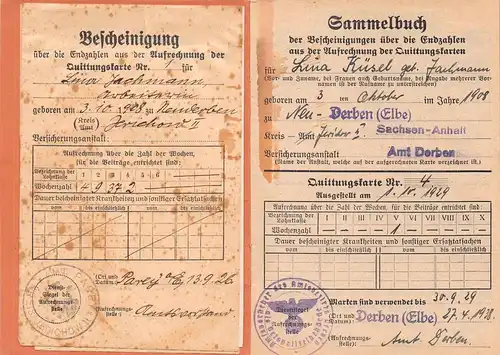 Bescheinigung
über die Endzahlen aus der Aufrechnung der
Quittungskarte Nr.
für Lina Jachmann,
Arbeiterin
geboren am 3.10.908 zu Neuderben
(Kreis / Amt) Jerichow II
Versicherungsanstalt:
Aufrechnung über die Zahl der Wochen,
für die Beiträge entrichtet sind:
Bezeichnung der Lohnklasse 1 2 3 4 5 6
Wochenzahl 4 9 37 2
Dauer bescheinigter Krankheiten und sonstiger Ersatztatsachen
vom bis einschließlich vom bis einschließlich
Dienst-
Siegel der
Aufrechnungs-
stelle
(Ort und Datum) Parey a/E, 13.9.26.
(Aufrechnungs-
stelle) Amtsvorstand
Sammelbuch
der Bescheinigungen über die Endzahlen
aus der Aufrechnung der Quittungskarten
für Lina Küsel geb. Jachmann
(Vor- und Zuname, bei Frauen auch Geburtsname, bei Angabe mehrerer Vornamen ist der Rufname zu unterstreichen)
geboren am 3 ten Oktober im Jahre 1908
zu Neu-Derben (Elbe)
Kreis - Amt Jerichow II Sachsen-Anhalt
Versicherungsanstalt Amt Derben
(Name der Anstalt, welche auf der aufgerechneten Karte verzeichnet ist.)
Quittungskarte Nr. 4
Ausgestellt am 1.10.1929
Aufrechnung über die Zahl der Wochen, für die Beiträge entrichtet sind:
Bezeichnung der Lohnklasse I II III IV V VI VII VIII IX X
Wochenzahl 1
Dauer bescheinigter Krankheiten und sonstiger Ersatztatsachen
vom bis einschließlich vom bis einschließlich
Dienstsiegel
der
Aufrechnungs-
stelle
Marken sind verwendet bis 30.9.29
(Ort und Datum) Derben (Elbe) 27.4.1938.
(Aufrechnungs-
stelle) Amt Derben.